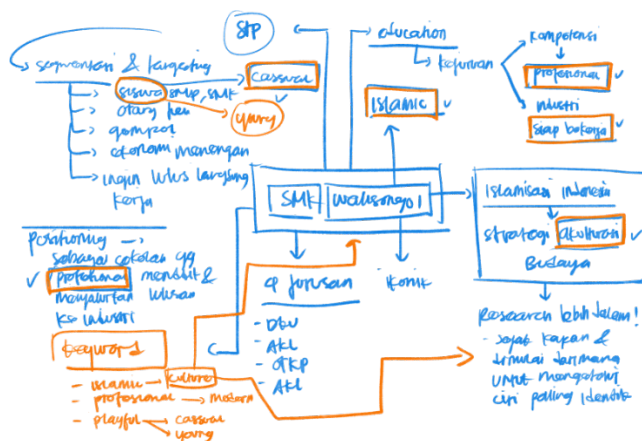 STP
segmentasi & targeting
siswa SMP, SMK
orang tua
ekonomi menengah
ingin lulus langsung
kerja
cassual
young
education
kejuruan
kompetensi
profesional
industri
siap bekerja
islamic
SMK walisongo 1
islamisasi indonesia
strategi akulturasi
Budaya
Research lebih dalam!
- sejak kapan &
dimulai darimana
untuk mengetahui
ciri paling identik
positioning
sebagai sekolah yg
profesional mendidik &
menyalurkan lulusan
ke industri
4 jurusan
- DKV
- AKL
- OTKP
- AKL
ikonik
keyword
- islamic culture
- profesional modern
- playful cassual
young